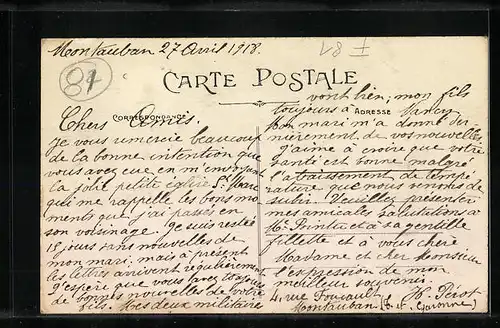 Montauban 27 Avril 1918.
V8 I
81
CARTE POSTALE
CORRESPONDANCE
ADRESSE
Chers Amis.
Je vous remercie beaucoup
de la bonne intention que
vous avez eue en m'envoyant
la jolie petite église St
que me rappelle les bons mo
ments que j'ai passés en
son voisinage. Je suis restée
15 jours sans nouvelles de
mon mari, mais à présent
les lettres arrivent régulièrement
J'espère que vous avez toujours
de bonnes nouvelles de votre
fils. Mes deux militaires
vont bien; mon fils
toujours à Nancy
mon mari m'a donné der-
nièrement de vos nouvelles
J'aime à croire que votre
santé est bonne malgré
l'abaissement de tempé
rature que nous venons de
subir. Veuillez présenter
mes amicales salutations à
Mr et à sa gentille
fillette et à vous chère
Madame et cher Monsieur
l'expression de mon
meilleur souvenir
4, rue Foucault
Montauban (T. et. Garonne)